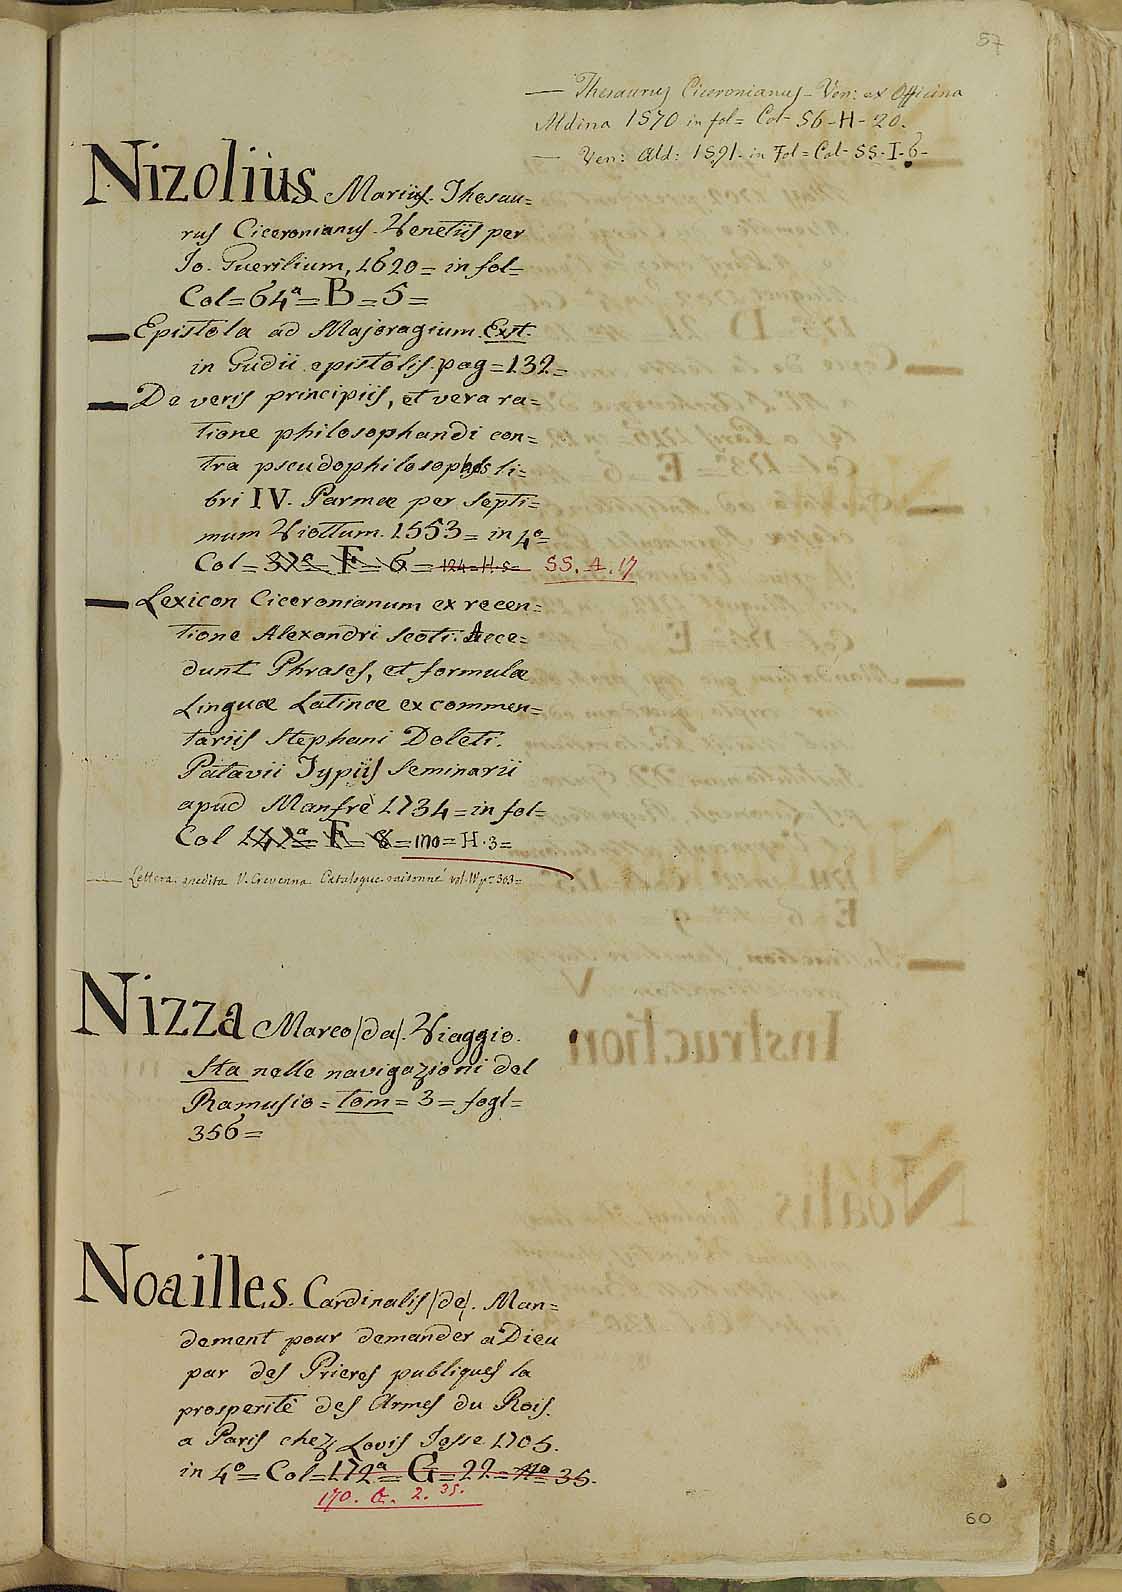 57
— Thesaurus Ciceronianus – Ven: ex Officina
Aldina 1570 in fol= Col- 56-H-20.
— Ven: Ald: 1591- in Fol= Col- SS-I-6-
Nizolius Marius. Thesau=
rus Ciceronianus. Venetiis per
Jo. Guerilium, 1620= in fol=
Col=64ª=B=5=
— Epistola ad Majoragium. Ext.
in Gudii epistolis. pag=132=
— De veris principiis, et vera ra=
tione philosophandi con=
tra pseudophilosophos li=
bri IV. Parmæ per Septi=
mum Viottum. 1553= in 4º=
Col=37ª=F=6=124=H.5= SS. A. 17
— Lexicon Ciceronianum ex recen=
tione Alexandri Scoti. Acce=
dunt Phrases, et formulæ
Linguæ Latinæ ex commen=
tariis Stephani Doleti.
Patavii Typiis Seminarii
apud Manfrè 1734= in fol=
Col 147ª=F=8=170=H.3=
— Lettera inedita V. Crevenna Catalogue raisonné vol. IV p= 303=
Nizza Marco /da/. Viaggio.
Sta nelle navigazioni del
Ramusio= tom=3= fogl=
356=
Noailles. Cardinalis /de/. Man=
dement pour demander a Dieu
par des Prieres publiques la
prosperitè des Armes du Rois.
a Paris chez Lovis Josse 1705.
in 4º= Col=172ª=G=22=nº 35.
170. G. 2. 35.
60